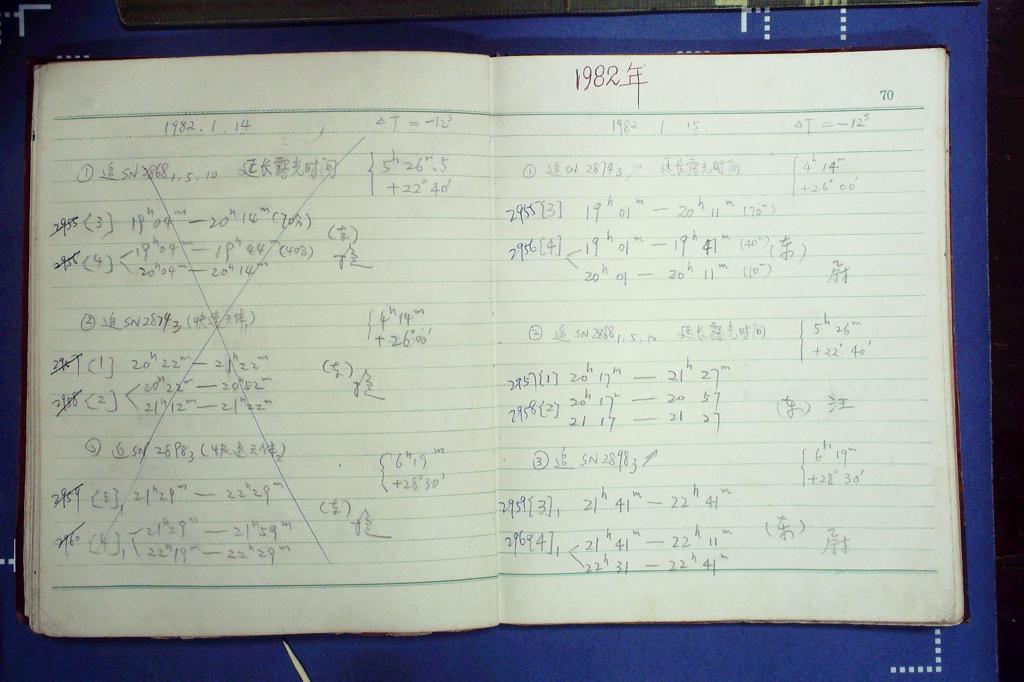 1982.1.14 ΔT=-12ˢ
① 追SN2868₁,₅,₁₀ 延长露光时间 5ʰ26ᵐ.5
+22°40′
2955 [3] 19ʰ04ᵐ—20ʰ14ᵐ(70分)
(东)
2956 [4] 19ʰ04ᵐ—19ʰ44ᵐ(40分)
20ʰ04ᵐ—20ʰ14ᵐ
② 追SN2874₃(快速天体) 4ʰ14ᵐ
+26°00′
2957 [1] 20ʰ22ᵐ—21ʰ22ᵐ
(东)
2958 [2] 20ʰ22ᵐ—20ʰ52ᵐ
21ʰ12ᵐ—21ʰ22ᵐ
③ 追SN2898₃(快速天体) 6ʰ19ᵐ
+28°30′
2959 [3]₁ 21ʰ29ᵐ—22ʰ29ᵐ
(东)
2960 [4]₁ 21ʰ29ᵐ—21ʰ59ᵐ
22ʰ19ᵐ—22ʰ29ᵐ
1982年
70
1982.1.15 ΔT=-12ˢ
① 追SN2874₃ 延长露光时间 4ʰ14ᵐ
+26°00′
2955[3] 19ʰ01ᵐ—20ʰ11ᵐ(70ᵐ)
2956[4] 19ʰ01ᵐ—19ʰ41ᵐ(40ᵐ) (东)
20ʰ01—20ʰ11ᵐ(10ᵐ) 尉
② 追SN2868₁,₅,₁₀ 延长露光时间 5ʰ26ᵐ
+22°40′
2957[1] 20ʰ17ᵐ—21ʰ27ᵐ
2958[2] 20ʰ17ᵐ—20 57 (东) 汪
21 17—21 27
③ 追SN2898₃ 6ʰ19ᵐ
+28°30′
2959[3]₁ 21ʰ41ᵐ—22ʰ41ᵐ
2960[4]₁ 21ʰ41ᵐ—22ʰ11ᵐ (东) 尉
22ʰ31—22ʰ41ᵐ